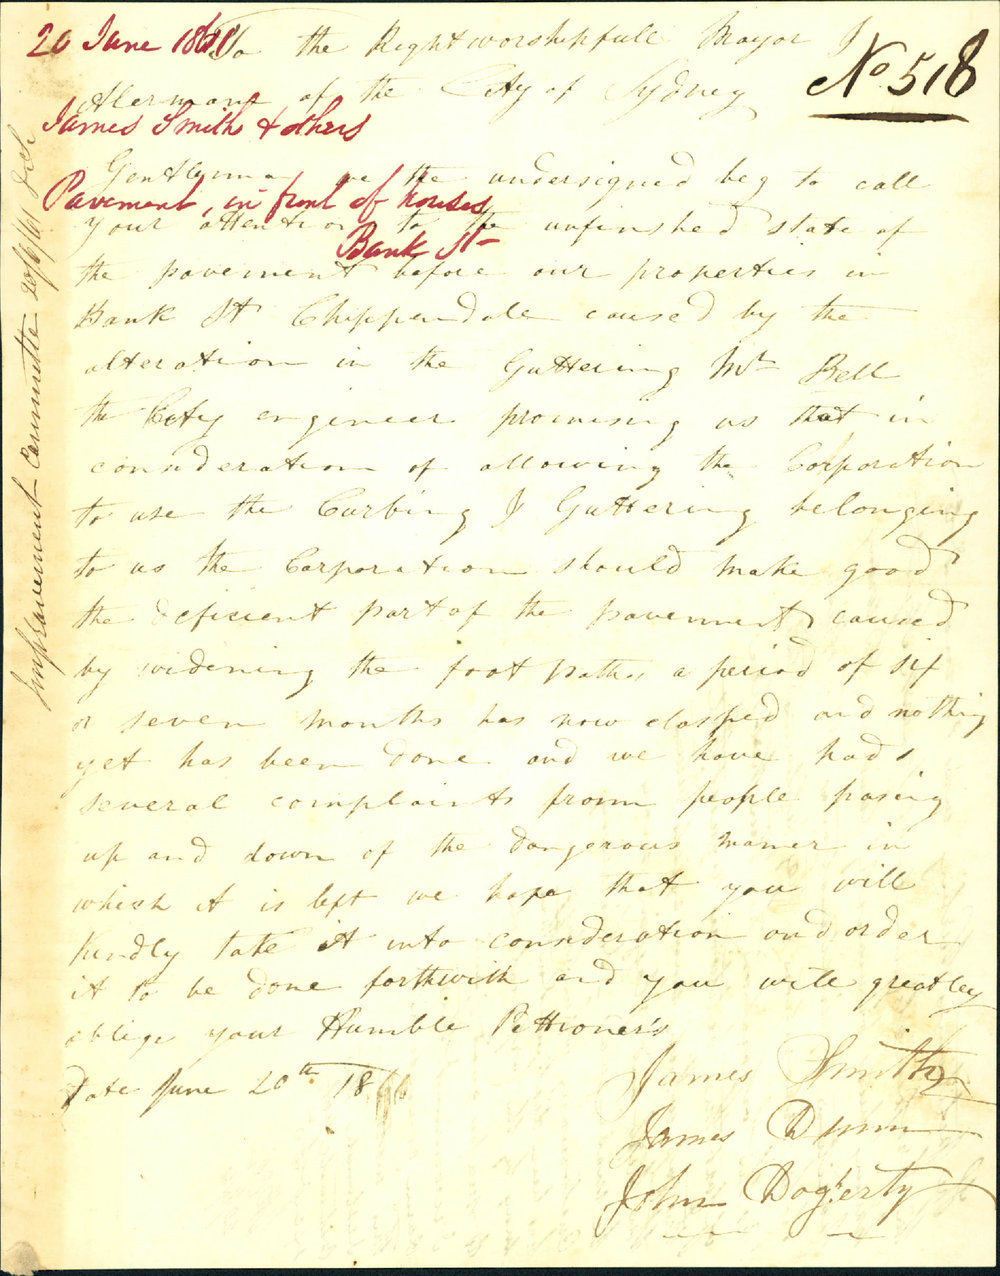 20 June 1861
James Smith & others
Pavement, in front of houses
Bank St
No 518
Improvement Committee 20/6/61
To the Right worshipfull Mayor &
Alermans of the City of Sydney
Gentlemen we the undersigned beg to call
your attention to the unfinshed state of
the pavement before our properties in
Bank St Chippendale caused by the
alteration in the Guttering Mr Bell
the City engineer promising us that in
consideration of allowing the Corporation
to use the Curbing & Guttering belonging
to us the Corporation should make good
the deficient part of the pavement caused
by widening the foot paths a period of six
or seven months has now elasped and nothing
yet has been done and we have had
several complaints from people pasing
up and down of the dangerous maner in
which it is left we hope that you will
kindly take it into consideration and order
it to be done forthwith and you will greatley
oblige your Humble Petitioner's
Date June 20th 18
James Smith
James Dunn
John Dogherty